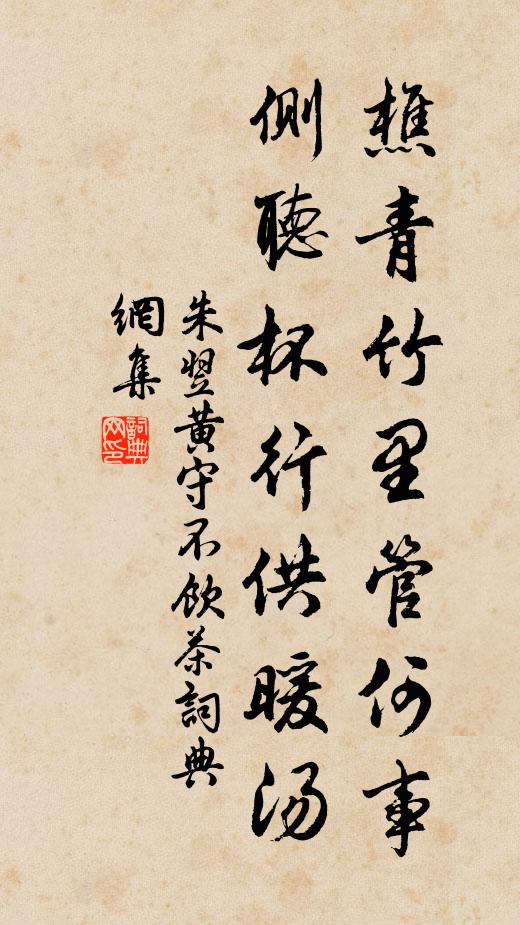 樵青竹里管何事
侧聽杯行供暖汤
朱翌黄守不飲茶詞典
網集
詞典
网印